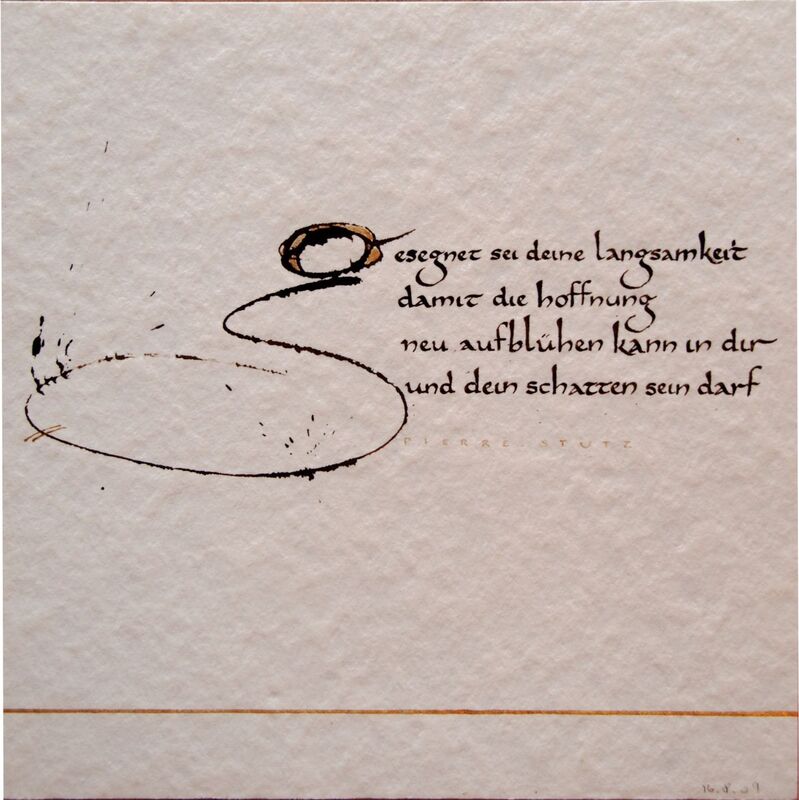 gesegnet sei deine langsamkeit
damit die hoffnung
neu aufblühen kann in dir
und dein schatten sein darf
PIERRE STUTZ